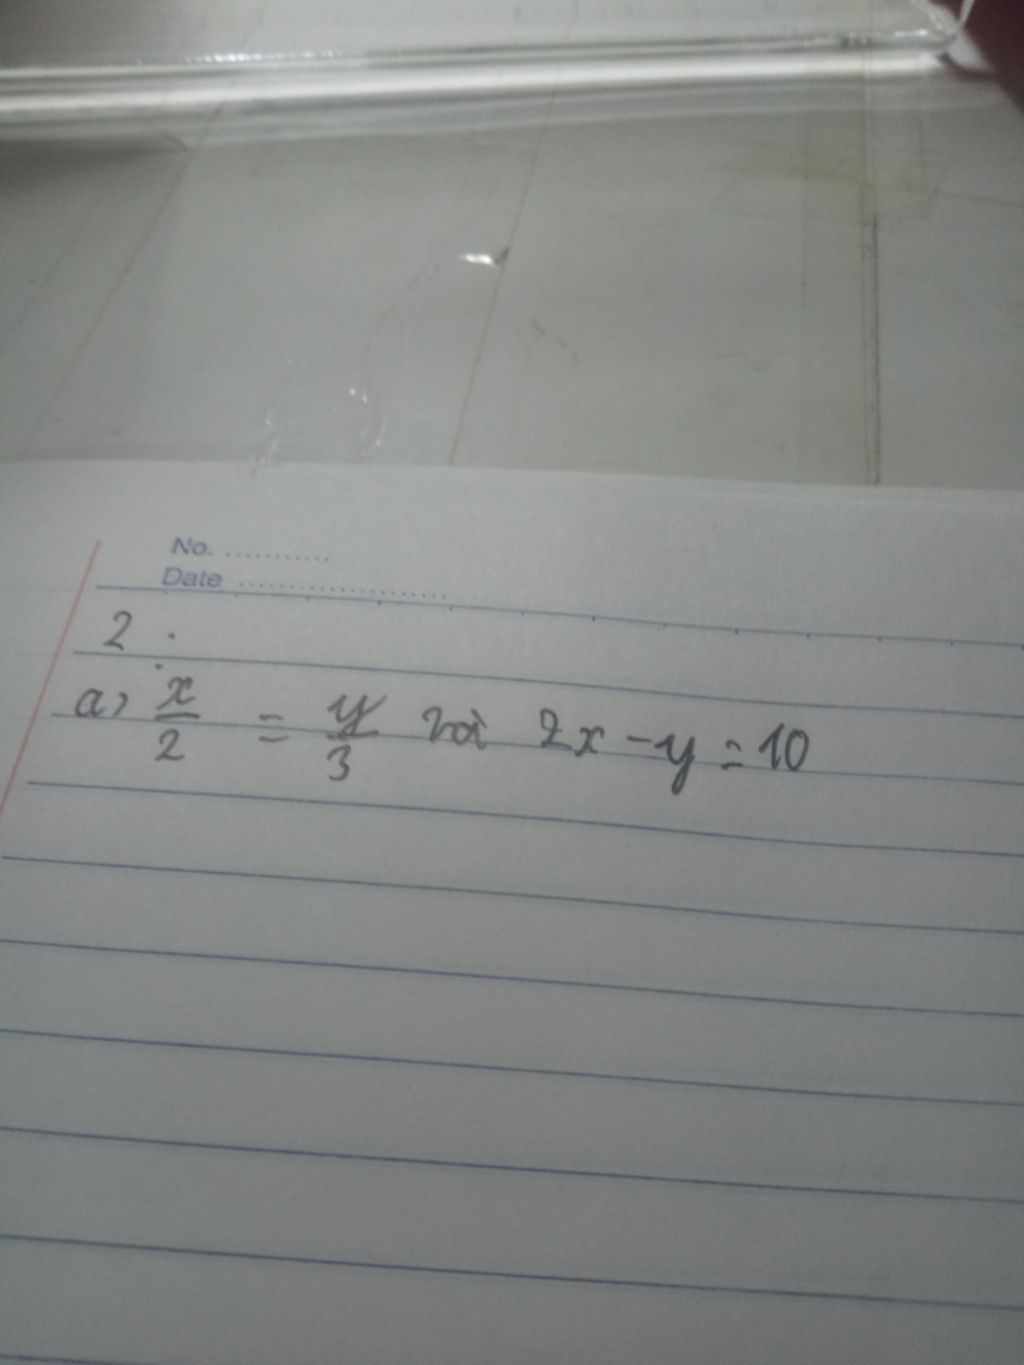 No. ...........
Date ...................
2.
a, x/2 = y/3 và 2x - y = 10